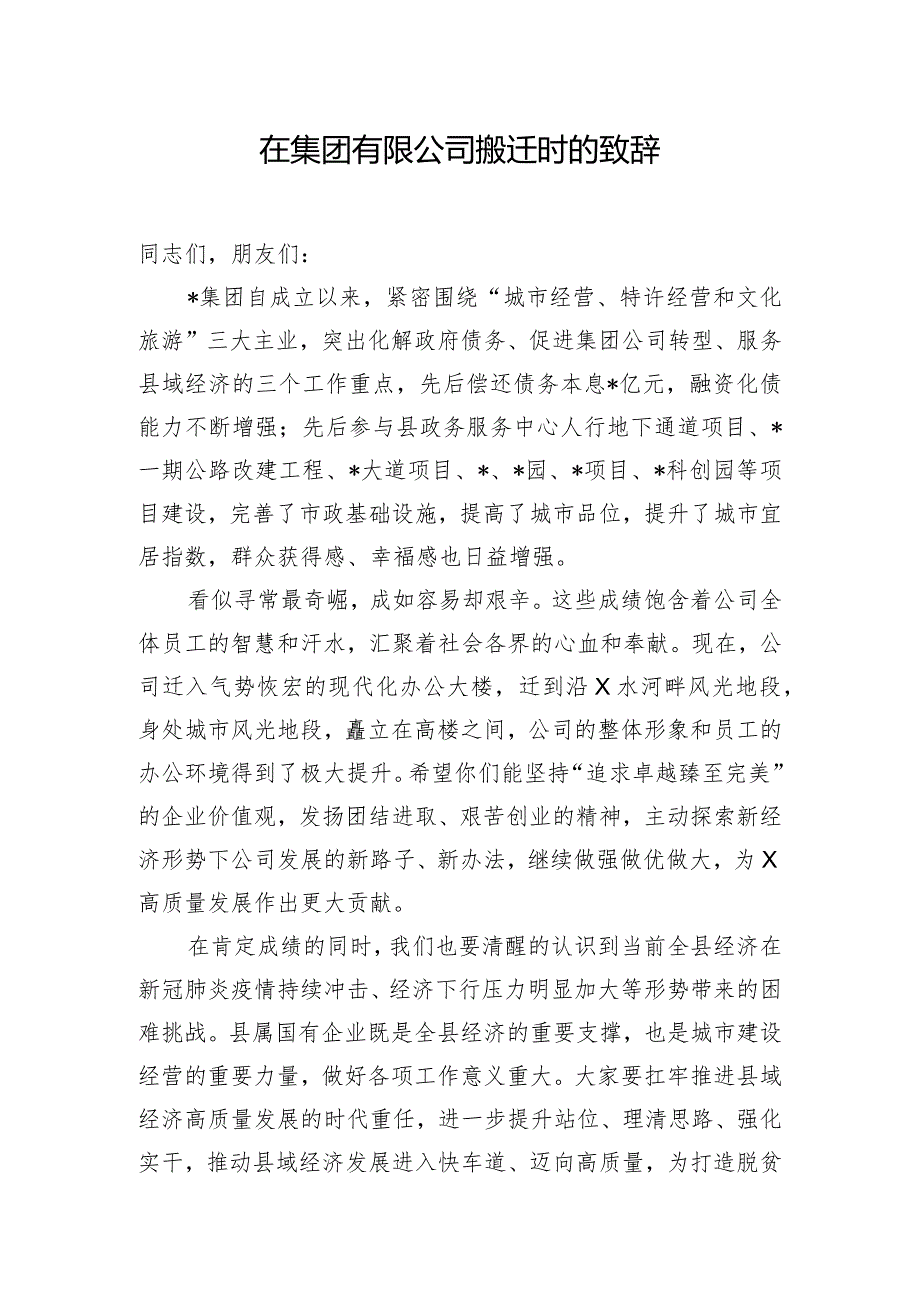 在集团有限公司搬迁时的致辞
同志们，朋友们：
*集团自成立以来，紧密围绕“城市经营、特许经营和文化
旅游”三大主业，突出化解政府债务、促进集团公司转型、服务
县域经济的三个工作重点，先后偿还债务本息*亿元，融资化债
能力不断增强；先后参与县政务服务中心人行地下通道项目、*
一期公路改建工程、*大道项目、*、*园、*项目、*科创园等项
目建设，完善了市政基础设施，提高了城市品位，提升了城市宜
居指数，群众获得感、幸福感也日益增强。
看似寻常最奇崛，成如容易却艰辛。这些成绩饱含着公司全
体员工的智慧和汗水，汇聚着社会各界的心血和奉献。现在，公
司迁入气势恢宏的现代化办公大楼，迁到沿X水河畔风光地段，
身处城市风光地段，矗立在高楼之间，公司的整体形象和员工的
办公环境得到了极大提升。希望你们能坚持“追求卓越臻至完美”
的企业价值观，发扬团结进取、艰苦创业的精神，主动探索新经
济形势下公司发展的新路子、新办法，继续做强做优做大，为X
高质量发展作出更大贡献。
在肯定成绩的同时，我们也要清醒的认识到当前全县经济在
新冠肺炎疫情持续冲击、经济下行压力明显加大等形势带来的困
难挑战。县属国有企业既是全县经济的重要支撑，也是城市建设
经营的重要力量，做好各项工作意义重大。大家要扛牢推进县域
经济高质量发展的时代重任，进一步提升站位、理清思路、强化
实干，推动县域经济发展进入快车道、迈向高质量，为打造脱贫